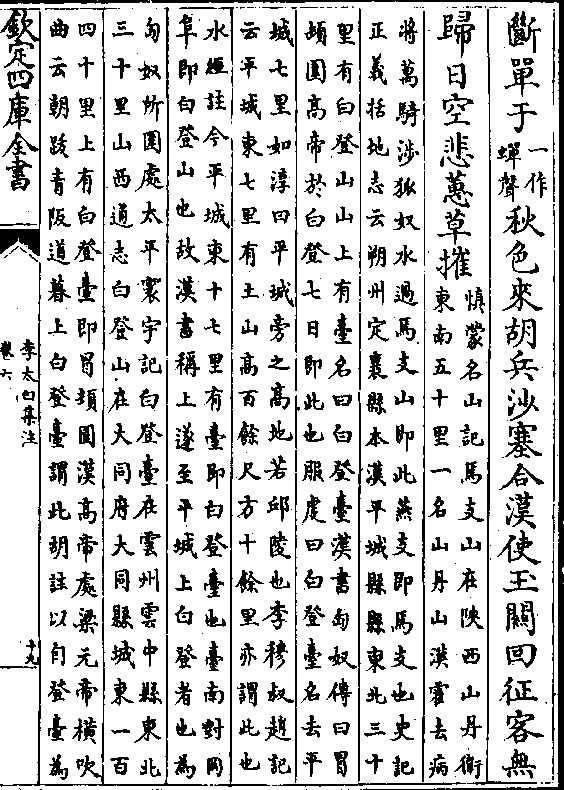 斷單于
一作
蟬聲
秋色來胡兵沙塞合漢使玉關回征客無
歸日空悲蕙草摧
慎蒙名山記焉支山在陜西山丹衛
東南五十里一名山丹山漢霍去病
將萬騎涉狐奴水過焉支山即此燕支即焉支也史記
正義括地志云朔州定襄縣本漢平城縣縣東北三十
里有白登山山上有臺名曰白登臺漢書匈奴傳曰冒
頓圍高帝於白登七日即此也服虔曰白登臺名去平
城七里如淳曰平城旁之高地若邱陵也李穆叔趙記
云平城東七里有土山高百餘尺方十餘里亦謂此也
水經註今平城東十七里有臺即白登臺也臺南對岡
阜即白登山也故漢書稱上遂至平城上白登者也為
匈奴所圍處太平寰宇記白登臺在雲州雲中縣東北
三十里山西通志白登山在大同府大同縣城東一百
四十里上有白登臺即冒頓圍漢高帝處梁元帝橫吹
曲云朝跋青陂道暮上白登臺謂此胡註以白登臺為
欽定四庫全書
李太白集注
卷六
十九